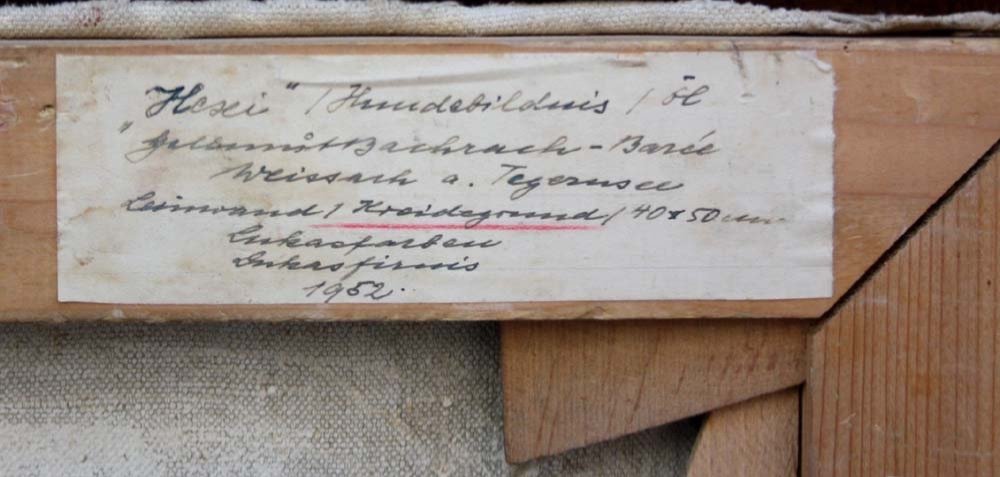 "Hexi" / Hundebildnis / Öl
Hellmut Bachrach-Barée
Weissach a. Tegernsee
Leinwand / Kreidegrund / 40x50 cm.
Lukasfarben
Lukasfirnis
1952.